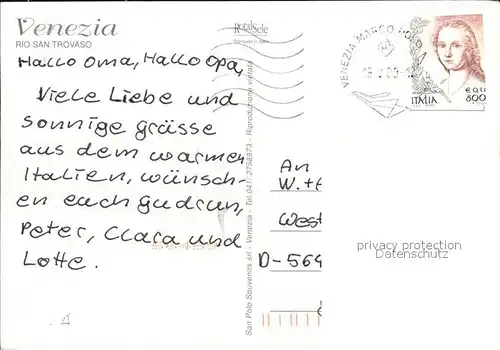 Venezia
RIO SAN TROVASO
Hallo Oma, Hallo Opa,
Viele Liebe und
sonnige grüsse
aus dem warmen
Italien, wünsch-
en euch Gudrun,
Peter, Clara und
Lotte.
San Polo Souvenirs srl - Venezia - Tel. 041/ 2758973 - Riproduzione vietata
VENEZIA MARCO POLO
ITALIA
€ 0,41
800
An
W.+
West
D-564
privacy protection
Datenschutz